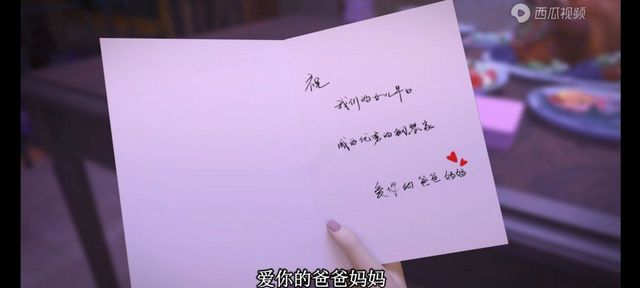 西瓜视频
祝
我们的女儿早日
成为优秀的钢琴家
爱你的爸爸妈妈
爱你的爸爸妈妈